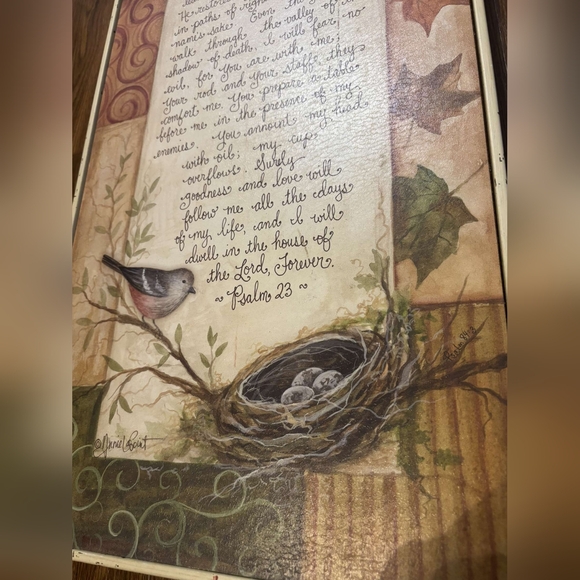 He restores
in paths of right
name's sake. Even th
walk through the valley of
shadow of death, I will fear no
evil, for You are with me;
Your rod and Your staff, they
comfort me. You prepare a table
before me in the presence of my
enemies. You annoint my head
with oil; my cup
overflows. Surely
goodness and love will
follow me all the days
of my life, and I will
dwell in the house of
the Lord, Forever.
~ Psalm 23 ~